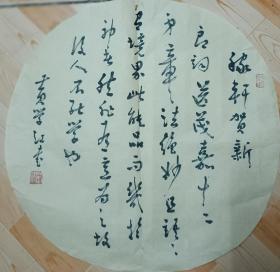 稼轩贺新
郎词送茂嘉十二
弟章法绝妙且语语
有境界此能品而几於
神者然非有意为之故
後人不能学也